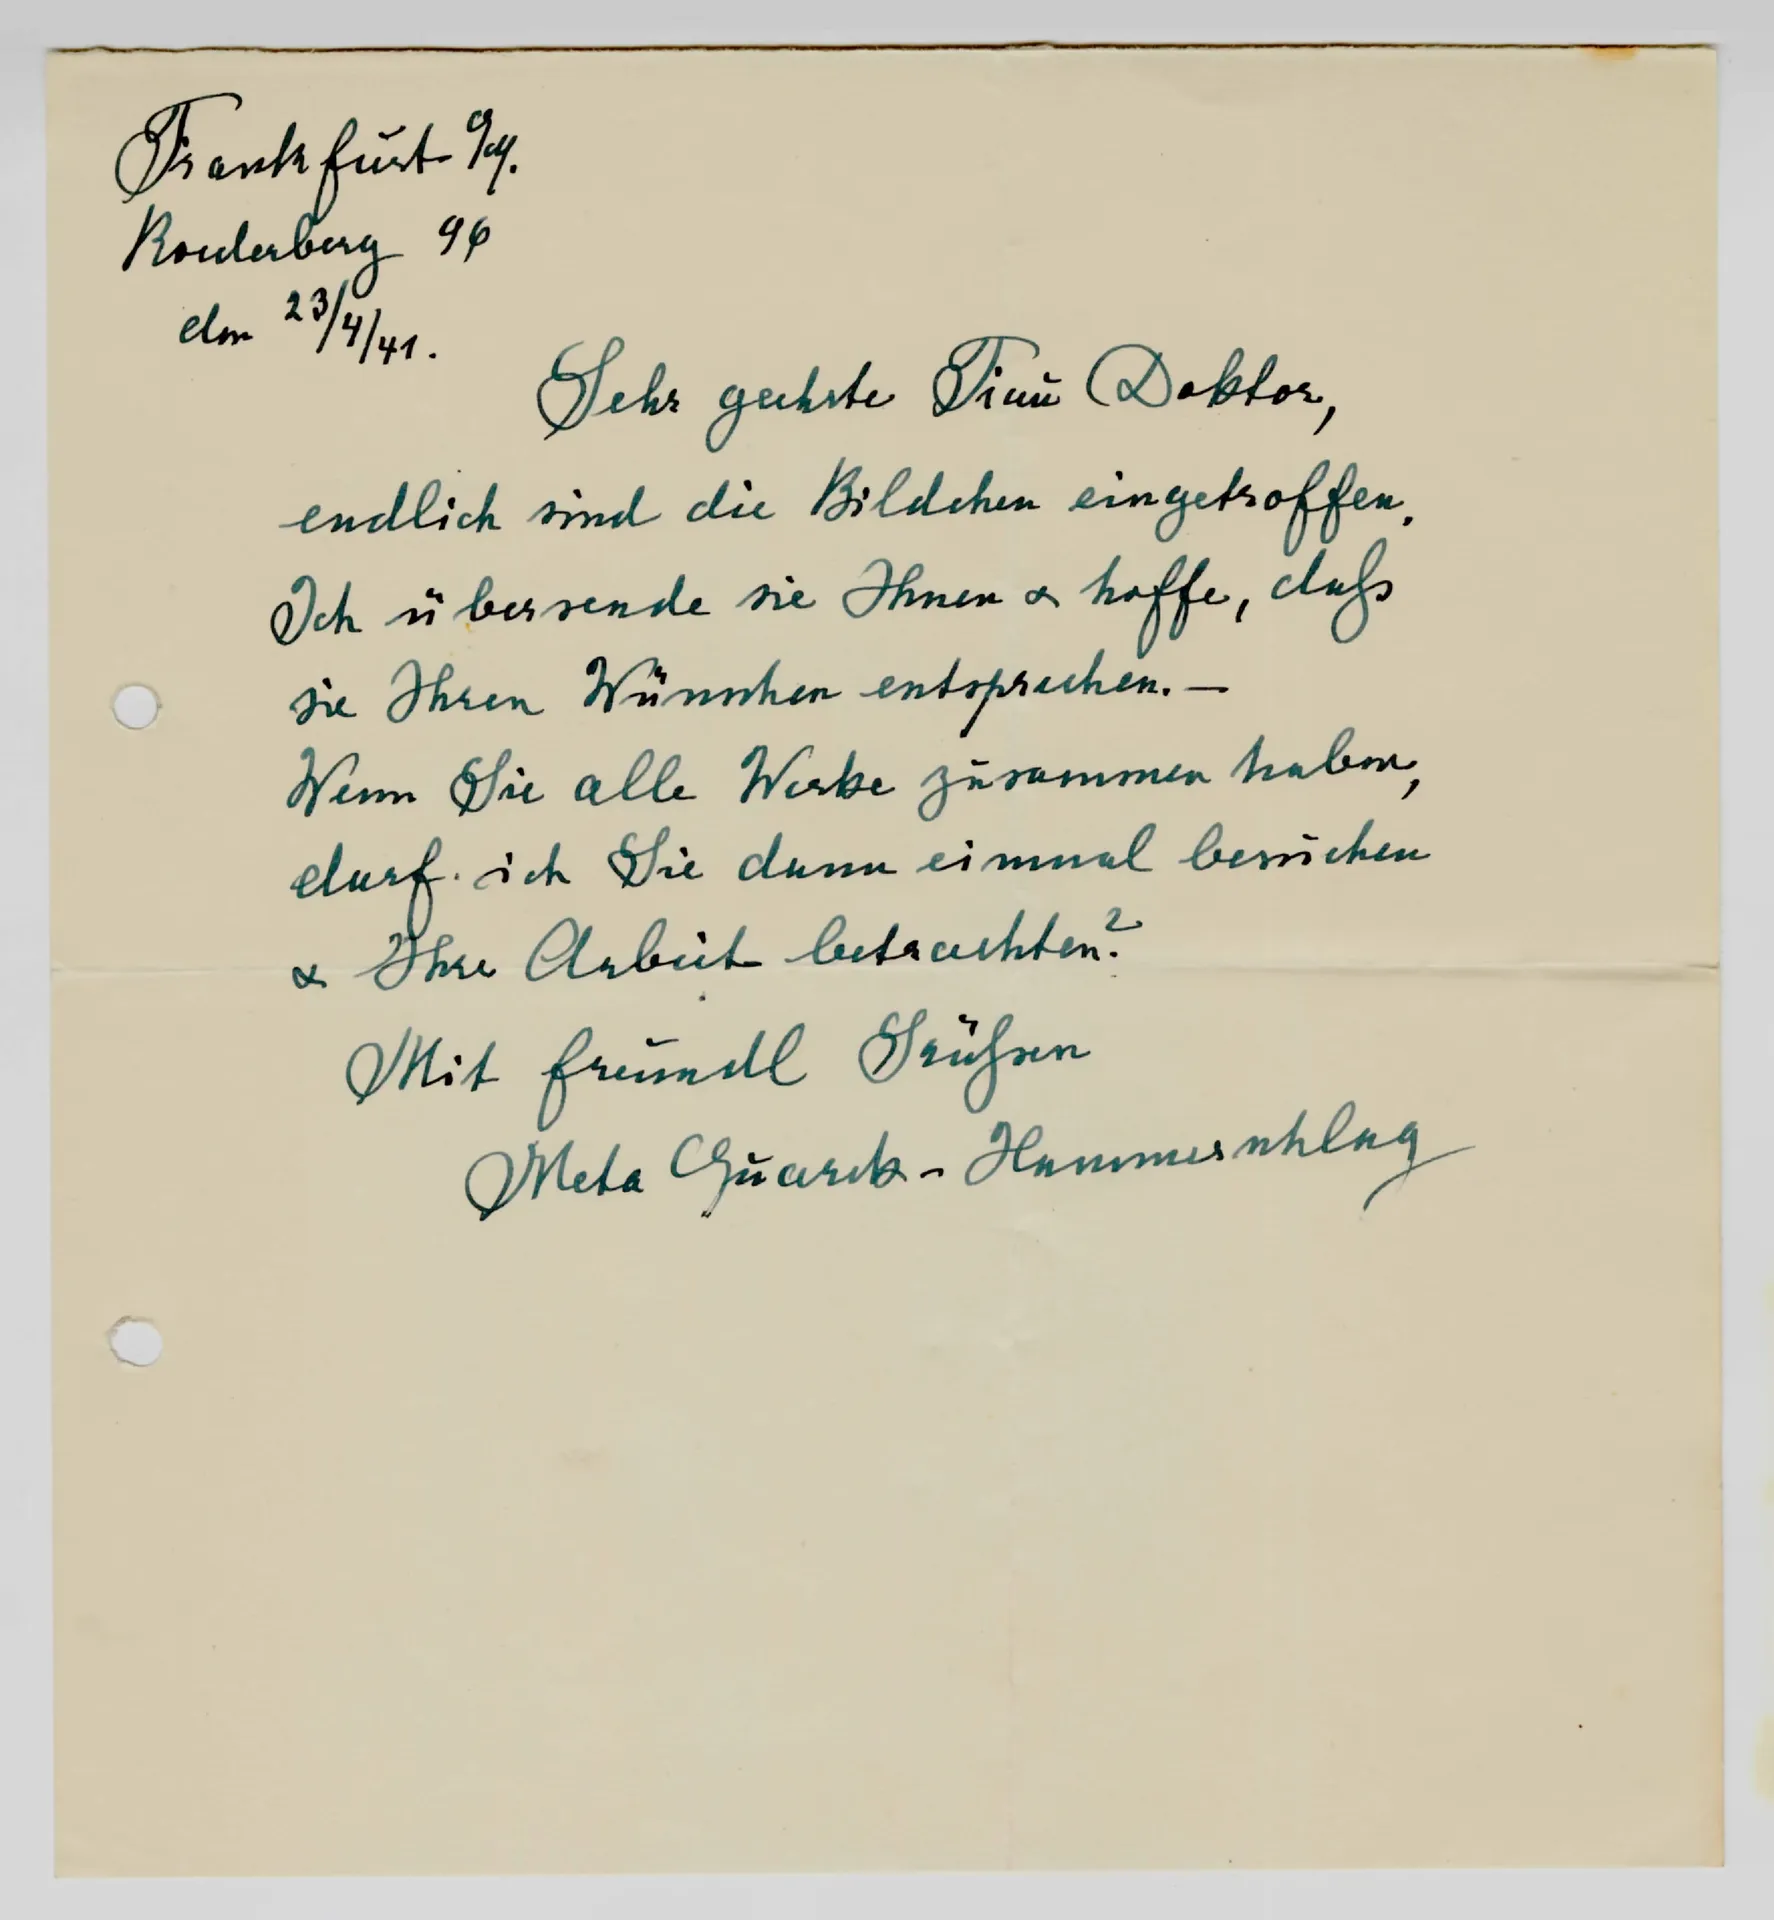 Frankfurt a/M.
Roederberg 96
den 23/4/41.
Sehr geehrte Frau Doktor,
endlich sind die Bildchen eingetroffen.
Ich übersende sie Ihnen & hoffe, daß
sie Ihren Wünschen entsprechen. —
Wenn Sie alle Werke zusammen haben,
darf ich Sie dann einmal besuchen
& Ihre Arbeit betrachten?
Mit freundl Grüßen
Meta Quarck-Hammerschlag